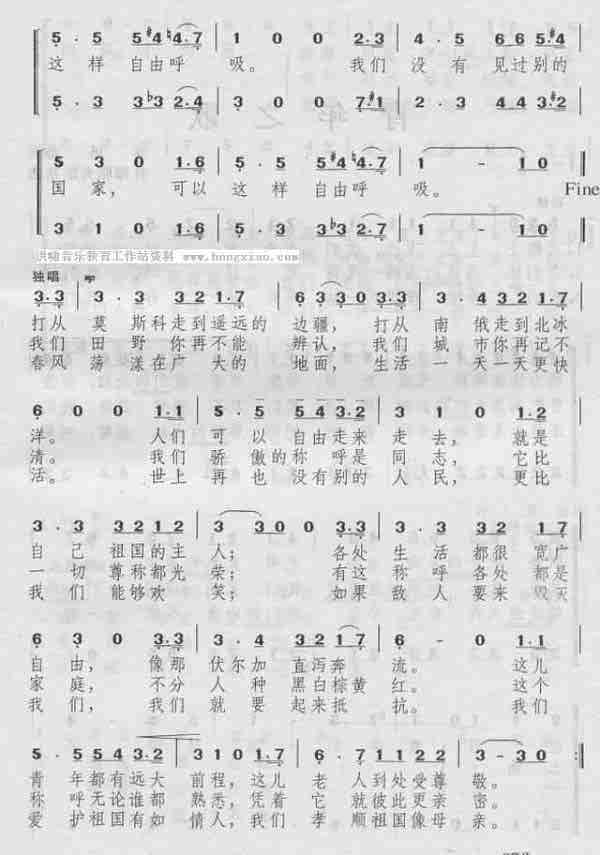 5·5 5#4♮4·7 | 1 0 0 2·3 | 4·5 66 5·#4
这 样 自由呼 吸。 我们 没 有 见过别的
5·3 3♭3 2·4 | 3 0 0 7·#1 | 2·4 43 #3·2
5 3 0 1·6 | 5·5 5#4♮4·7 | 1 - 10
国 家, 可以 这 样 自由呼 吸。 Fine
3 1 0 1·6 | 5·3 3♭3 2·4 | 1 - 10
洪啸音乐教育工作站资料 www.hongxiao.com
独唱
3·3 | 3·3 32 1·7 | 6·3 3 0 3·3 | 2·3 32 1·7
打从 莫 斯科走到遥远的 边疆, 打从 南 俄走到北冰
我们 田 野 你再不能 辨认, 我们 城 市你再记不
春风 荡 漾在广 大的 地面, 生活 一 天一天更快
6 0 0 1·1 | 5·5 55 43 3·2 | 3 1 0 1·2
洋。 人们 可 以 自由走来 走去, 就是
清。 我们 骄 傲的称 呼是 同志, 它比
活。 世上 再 也 没有别 的 人 民, 更比
3·3 32 12 | 3 3 0 0 3·3 | 3·3 32 1·7
自 己 祖国的主 人; 各处 生 活 都很 宽广
一 切 尊称都光 荣; 有这 称 呼 各处 都是
我 们 能够欢 笑; 如果 敌 人 要来 毁灭
6 3 0 3·3 | 3·4 32 1·7 | 6 - 0 1·1
自由, 像那 伏尔加 直泻奔 流。 这儿
家 庭, 不分 人 种 黑白棕黄 红。 这个
我们, 我们 就 要 起来抵 抗。 我们
5·5 55 4 3·2 | 3 1 0 1·7 | 6·7 11 22 | 3 - 3 0 :
青 年都有远大 前程,这儿 老 人到处受尊 敬。
称 呼无论谁都 熟悉,凭着 它 就彼此更亲 密。
爱 护祖国有如 情人,我们 孝 顺祖国像母 亲。